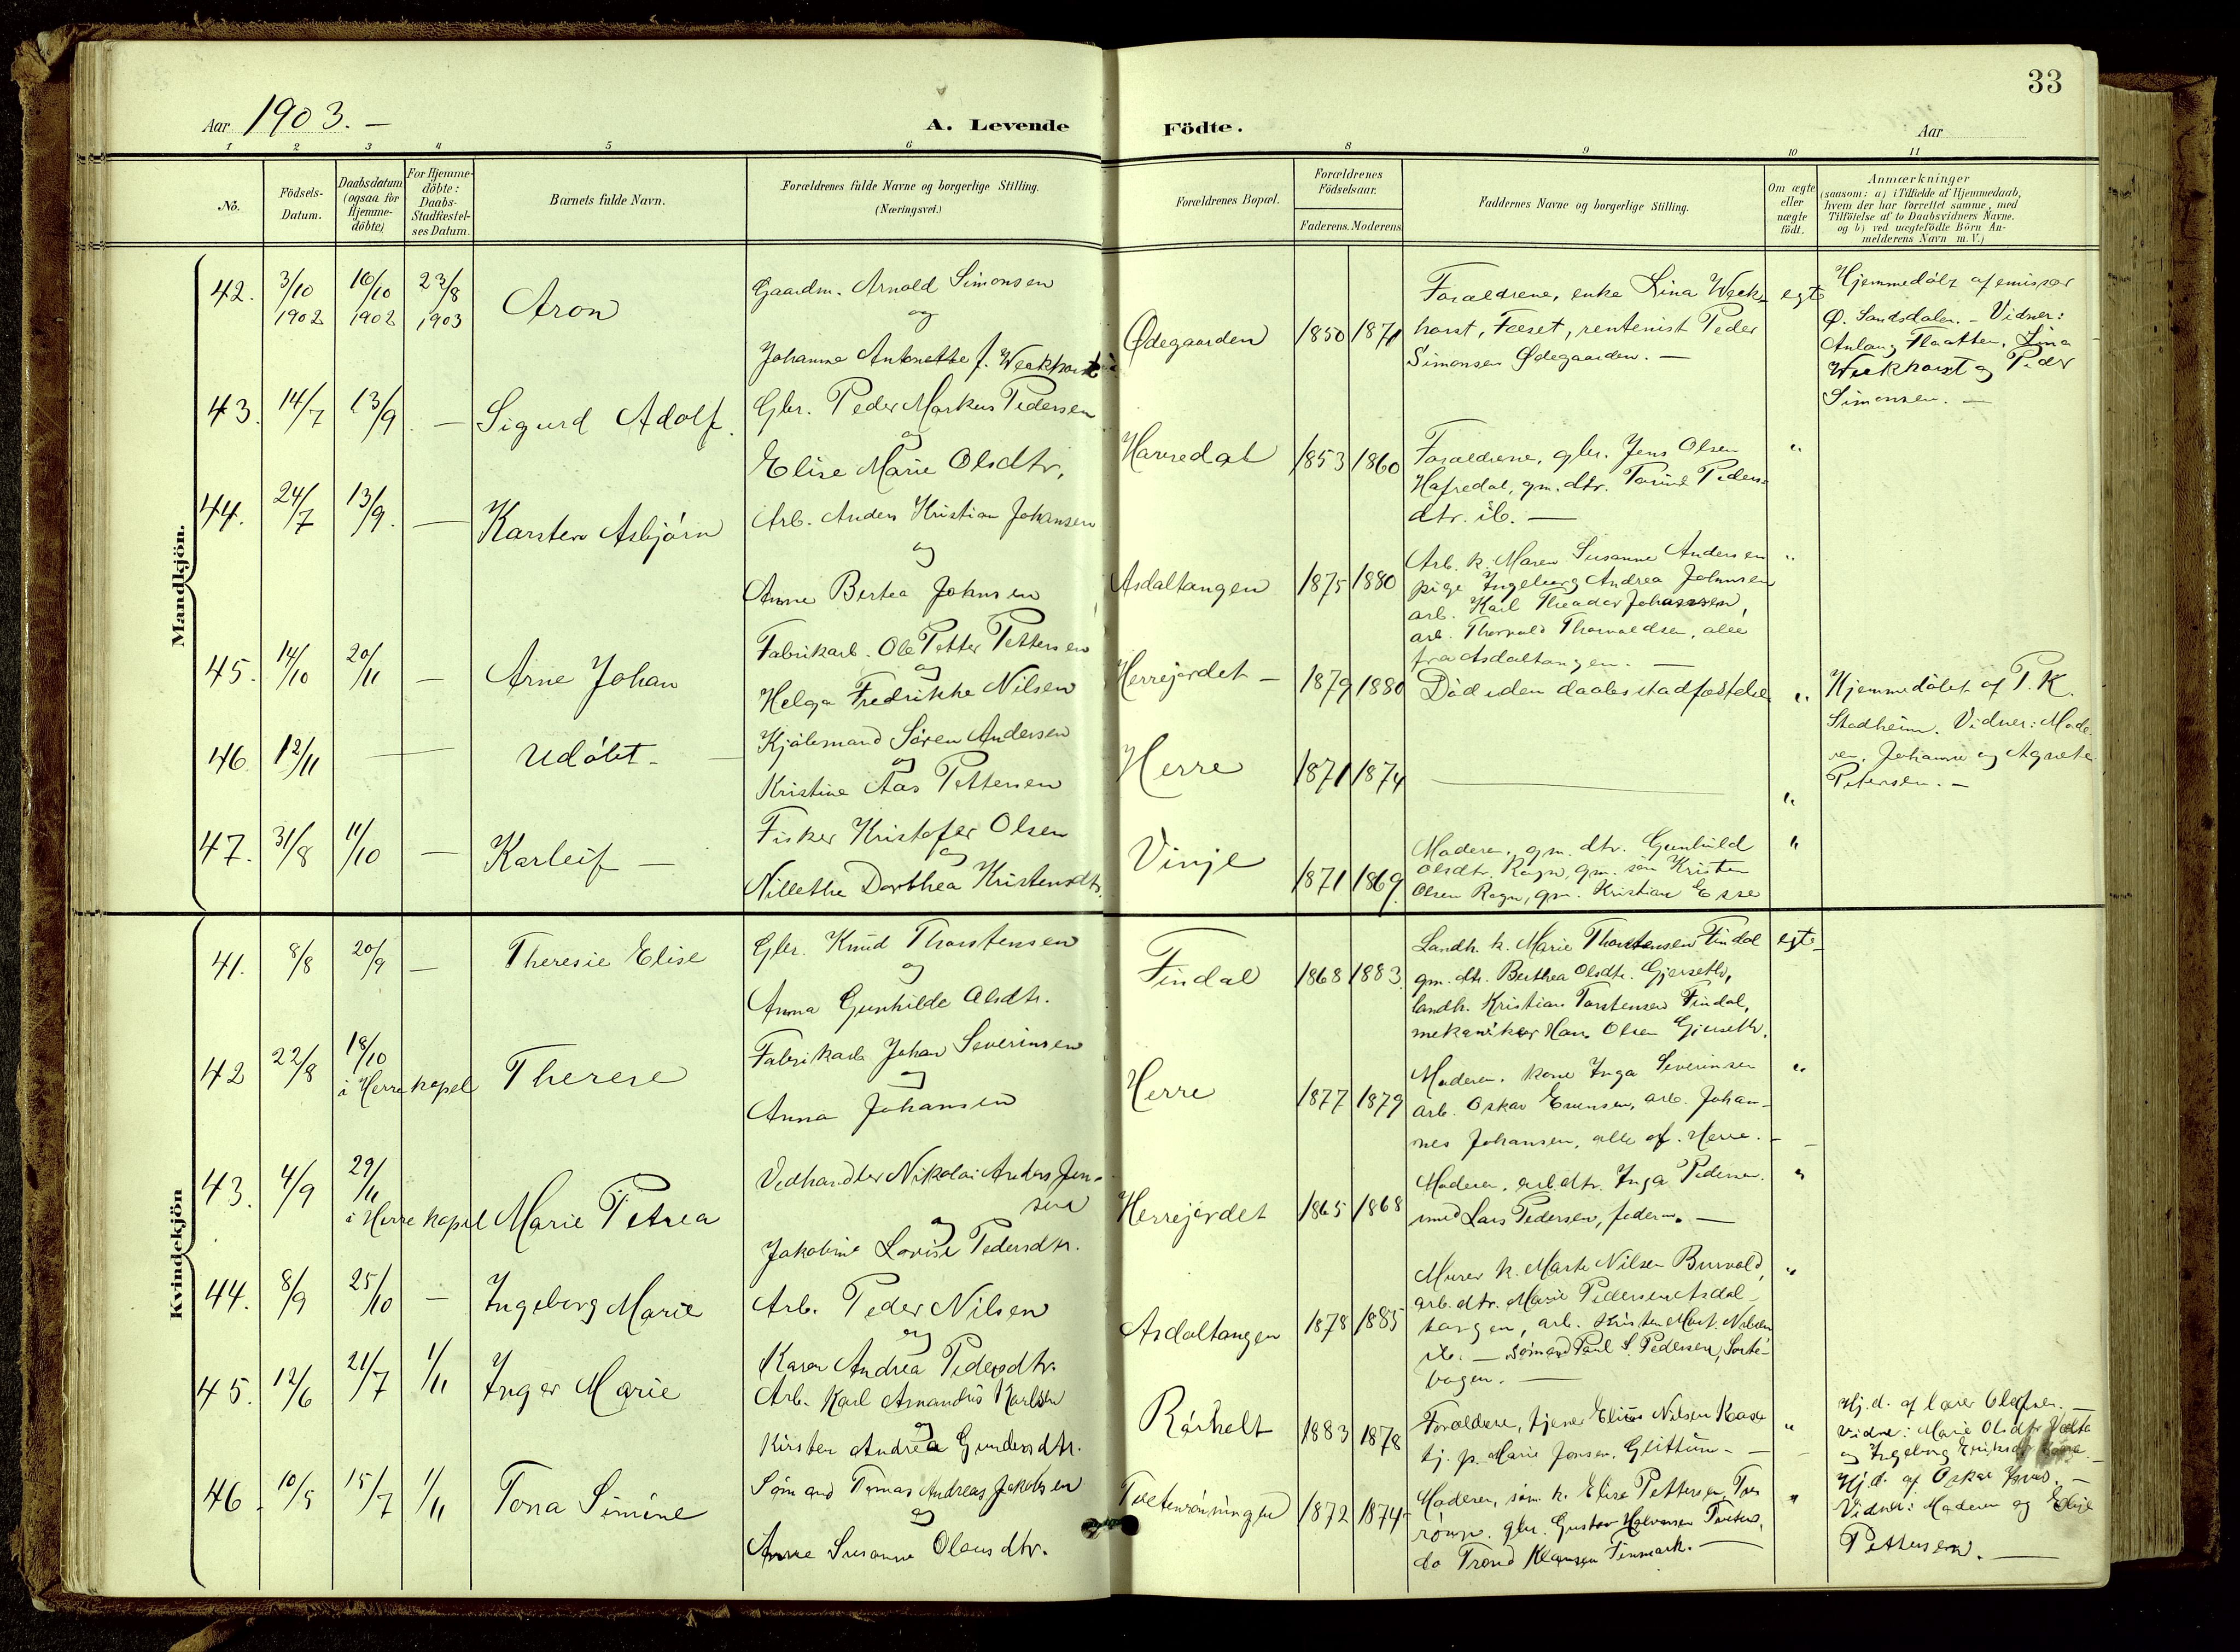 33
Aar 1903. —
A. Levende Födte.
Aar
1 2 3 4 5 6 8 9 10 11
No.
Födsels-
Datum.
Daabsdatum
(ogsaa for
Hjemme-
döbte)
For Hjemme-
döbte:
Daabs-
Stadfæstel-
ses Datum.
Barnets fulde Navn.
Forældrenes fulde Navne og borgerlige Stilling.
(Næringsvei.)
Forældrenes Bopæl.
Forældrenes
Födselsaar.
Faderens. Moderens
Faddernes Navne og borgerlige Stilling.
Om ægte
eller
uægte
födt.
Anmærkninger
(saasom: a) i Tilfælde af Hjemmedaab,
hvem der har forrettet samme, med
Tilföielse af to Daabsvidners Navne.
og b) ved uægtefödte Börn An-
melderens Navn m.V.)
Mandkjön.
42. 3/10 1902 16/10 1902 23/8 1903 Aron
Gaardm. Arnold Simonsen
og
Johanne Antonette f. Weekhorst
Ødegaarden 1850 1871
Forældrene, enke Lina Week-
horst, Feset, rentenist Peder
Simonsen Ødegaarden. —
egte
Hjemmedöbt af emissær
Ø. Sandsdalen. — Vidner:
Flaatten, Lina
Weekhorst og Peder
Simonsen. —
43. 14/7 13/9 — Sigurd Adolf.
Gbr. Peder Markus Pedersen
og
Elise Marie Olsdtr,
Havredal 1853 1860
Forældrene, gbr. Jens Olsen
Hafredal, gm. dtr. Torine Peders-
dtr. ib. —
"
44. 24/7 13/9. — Karsten Asbjörn
Arb. Anders Kristian Johansen
og
Anne Bertea Johnsen
Asdaltangen 1875 1880
Arb. k. Maren Susanne Andersen
pige Ingeborg Andrea Johnsen
arb. Karl Theodor Johannsen,
arb. Thorvald Thorvaldsen, alle
fra Asdaltangen. —
"
45. 14/10 20/11 — Arne Johan
Fabrikarb. Ole Petter Pettersen
og
Helga Fredrikke Nilsen
Herrejordet — 1879 1880
Död uden daabsstadfæstelse
"
Hjemmedöbt af P. K.
Stadheim. Vidner: Mode-
ren, Johanne og Agnete
Petersen. —
46. 12/11 — Udöbt. —
Kjölemand Sören Andersen
og
Kristine Aas Pettersen
Herre 1871 1874 —
"
47. 31/8 11/10 — Karleif —
Fisker Kristofer Olsen
og
Nillethe Dorthea Kristensdtr.
Vinje 1871 1869.
Moderen, gm. dtr. Gunhild
Olsdtr. Rogn, gm. sön Kristen
Olsen Rogn, gm. Kristian Esse
"
Kvindekjön
41. 8/8 20/9 — Theresie Elise
Gbr. Knud Thorstensen
og
Anna Gunhilde Olsdtr.
Findal 1868 1883.
Landh. k. Marie Thorstensen Findal
gm. dtr. Berthea Olsdtr. Gjerseth,
landh. Kristian Torstensen Findal,
mekaniker Hans Olsen Gjerseth.
egt—
42 22/8 18/10
i Herre kapel
Therese
Fabrikarb Johan Severinsen
og
Anna Johansen
Herre 1877 1879
Moderen. kone Inga Severinsen
arb. Oskar Evensen, arb. Johan-
nes Johansen, alle af Herre. —
"
43. 4/9 29/11
i Herre kapel Marie Petrea
Vedhandler Nikolai Anders Jen-
sen
og
Jakobine Lovise Pedersdtr.
Herrejordet 1865 1868
Moderen. arb.dtr. Inga Pedersen.
smed Lars Pedersen, federm. —
"
44. 8/9 25/10 — Ingeborg Marie
Arb. Peder Nilsen
og
Karen Andrea Pedersdtr.
Asdaltangen 1878 1885
Murer k. Marte Nilsen Burvold,
arb. dtr. Marie Pedersen Asdal-
tangen, arb. Kristen Mart. Nilsen
ib. — sömand Paul S. Pedersen, Sorte-
bogen. —
"
45. 12/6 21/7 1/11 Inger Marie
Arb. Karl Amandus Karlsen
og
Kirsten Andrea Gundersdtr.
Rörholt 1883 1878
Forældrene, tjener Elias Nilsen Kaasa
tj. p. Marie Jonsen. Glittum — —
"
Hj. d. af lærer Olafsen. —
Vidne: Marie Olsdtr
og Ingeborg Eriksdtr
46. 10/5 15/7 1/11 Tora Simine
Sömand Tomas Andreas Jakobsen
og
Anne Susanne Olausdtr.
Tvetenröiningen 1872 1874
Moderen, söm. k. Elise Pettersen,
gbr. Gustav Halvorsen
do Trond Klausen Finmark. —
"
Hj. d. af Oskar —
Vidner: Moderen og Elise
Pettersen. —